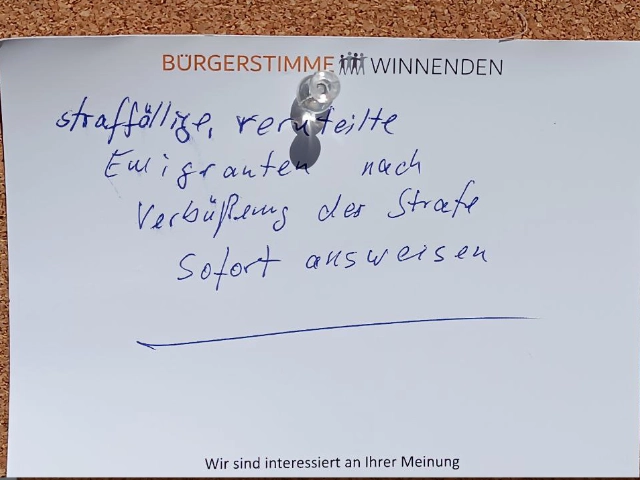 BÜRGERSTIMME WINNENDEN
straffällige, verurteilte
Emigranten nach
Verbüßung der Strafe
Sofort ausweisen
Wir sind interessiert an Ihrer Meinung